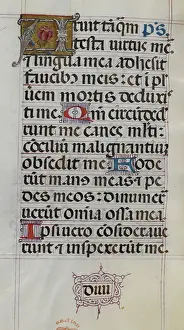 Aruit tāq̃m p̃s
testa virtus me
et lingua mea adhesit
faucibus meis: et i pl
uerem mortis deduxi
ti me. Qm̄ circūdede
runt me canes mlti:
cōciliū malignantiuz
obsedit me. Fode
rūt manꝰ meas ⁊ pe
des meos: dinumera
uerūt oīnia ossa mea
Ipsi vero cōsiderave
runt et inspexerūt me.